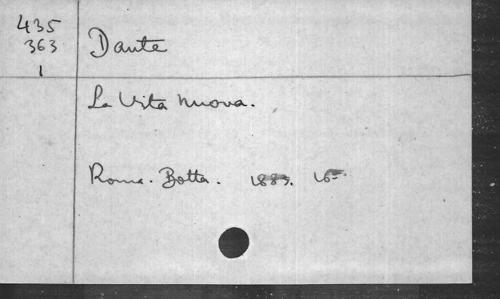 435
363
1
Dante
La Vita nuova.
Roma. Botta. 1883. 16-